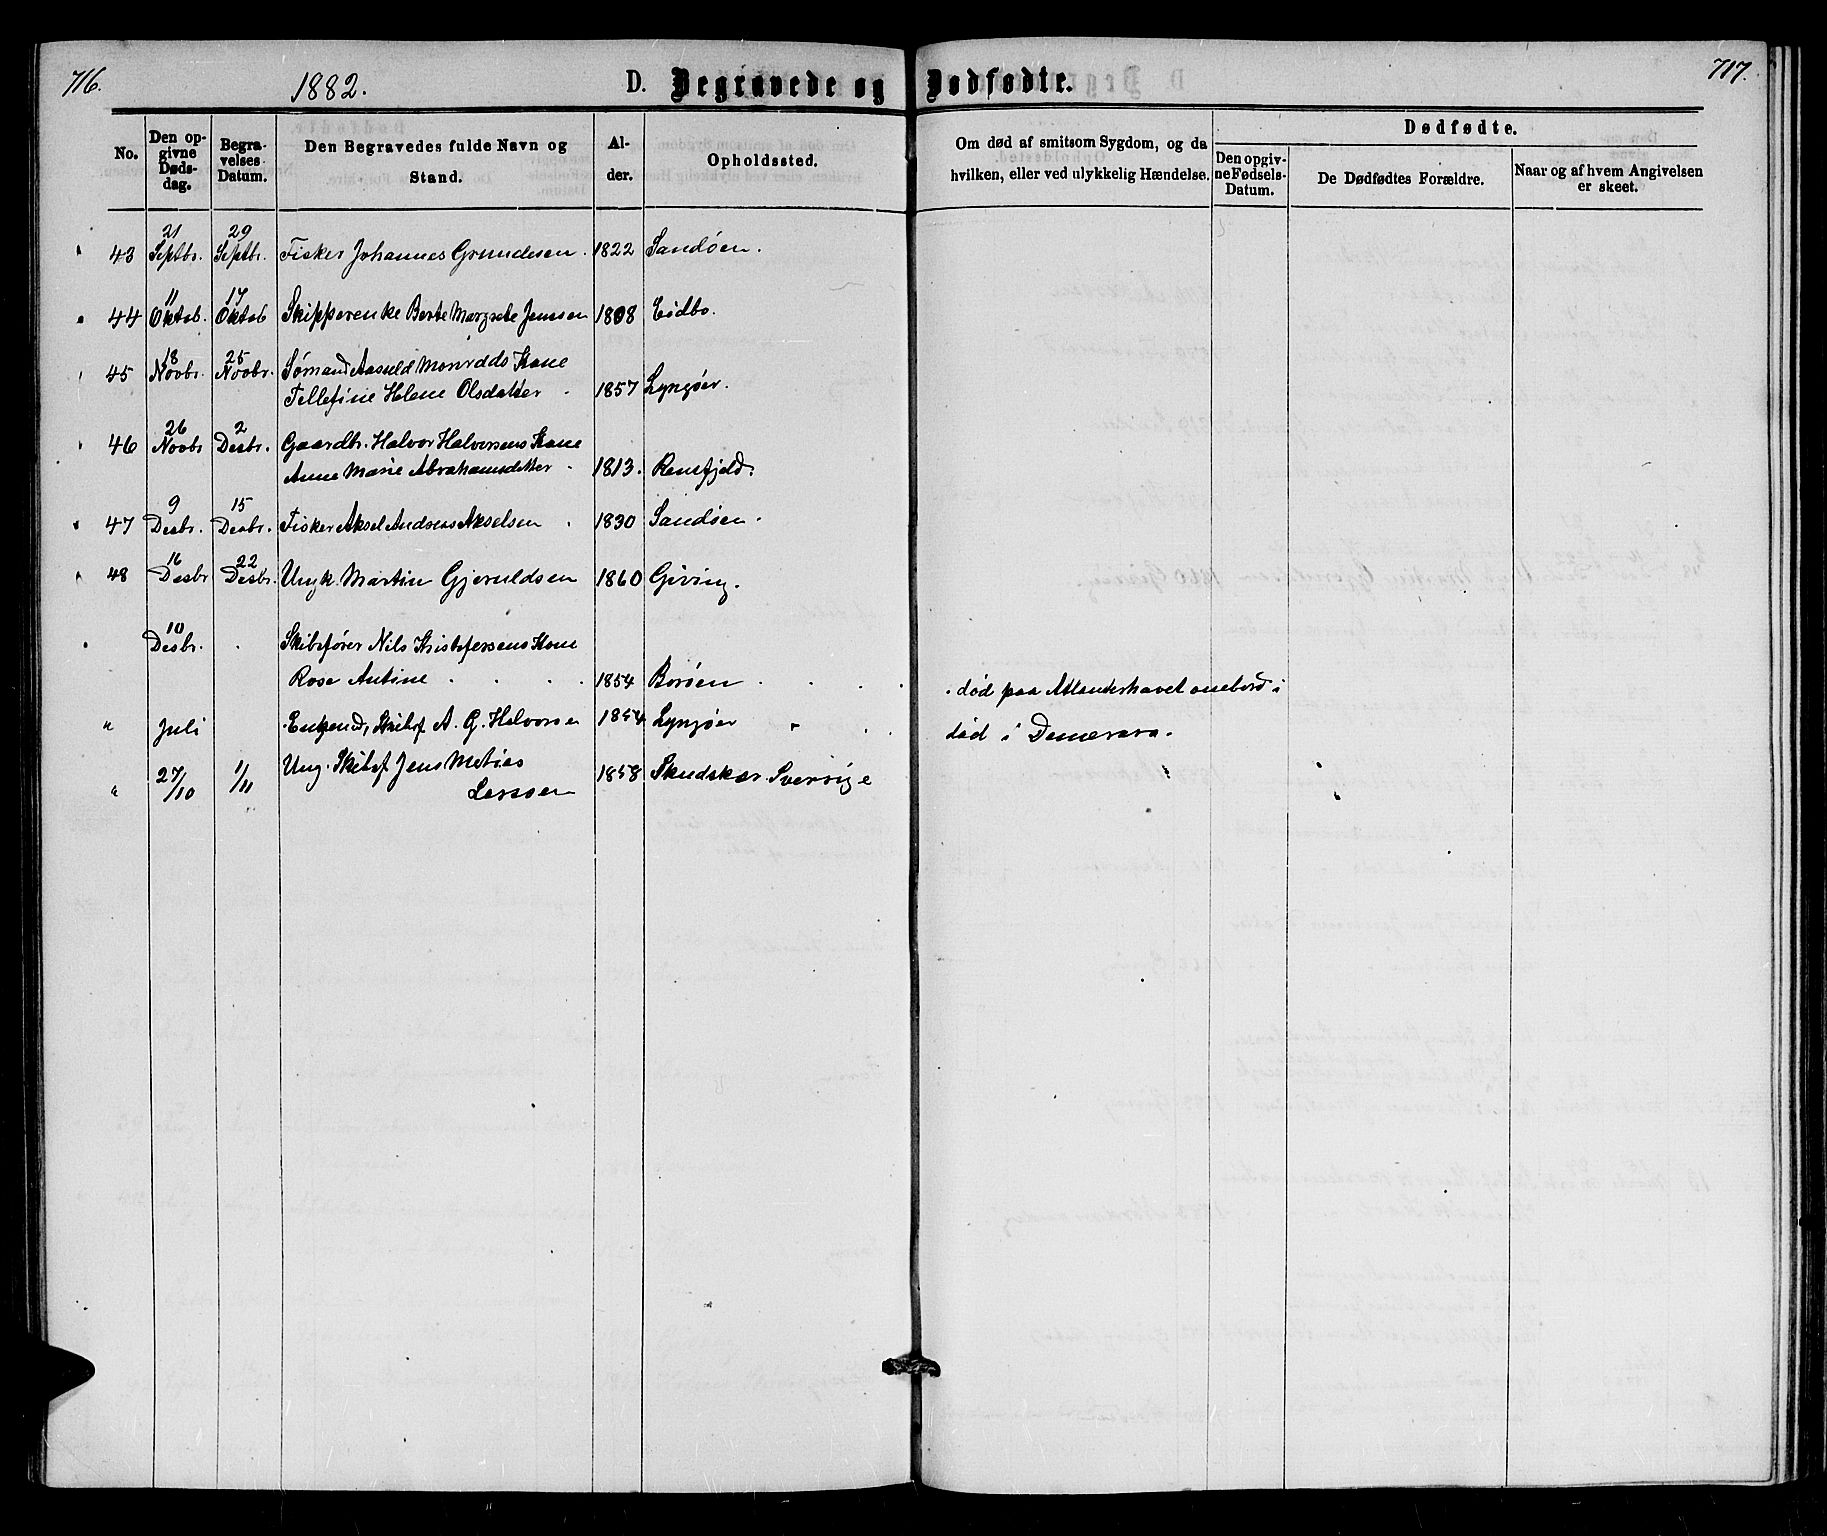 716.
1882.
D. Begravede og Dødfødte.
717.
No.
Den opgivne Dødsdag.
Begravelses Datum.
Den Begravedes fulde Navn og Stand.
Alder.
Opholdssted.
Om død af smitsom Sygdom, og da hvilken, eller ved ulykkelig Hændelse.
Dødfødte.
Den opgivne Fødsels-Datum.
De Dødfødtes Forældre.
Naar og af hvem Angivelsen er skeet.
43 21 Septbr. 29 Septbr. Fisker Johannes Grundesen . 1822 Sandøen .
44 11 Oktob. 17 Oktob Skipperenke Berte Margrete Jenssen 1808 Eidbo.
45 18 Novbr. 25 Novbr. Sømand Aasuld Monrdds Kone
Tellefine Helene Olsdatter . 1857 Lyngøer.
46 26 Novbr 2 Desbr. Gaardbr. Halvor Halvorsens Kone
Anne Marie Abrahamsdatter . 1813. Rensfjeld.
47 9 Desbr. 15 Desbr. Fisker Aksel Andreas Akselsen . 1830 Sandøen .
48 16 Desbr 22 Desbr. Ungk. Martin Gjeruldsen 1860 Giving.
10 Desbr. . Skibsfører Nils Kristofersens Kone
Rose Antine . . . . 1854 Borøen . . . . død paa Atlanterhavet ombord i
" Juli Enkemd, Skibsf. A. G. Halvorsen 1854 Lyngøer " . død i Demerara.
" 27/10 1/11 Ung. Skibsf. Jens Matias
Larssen 1858 Skudskær Sverrig e